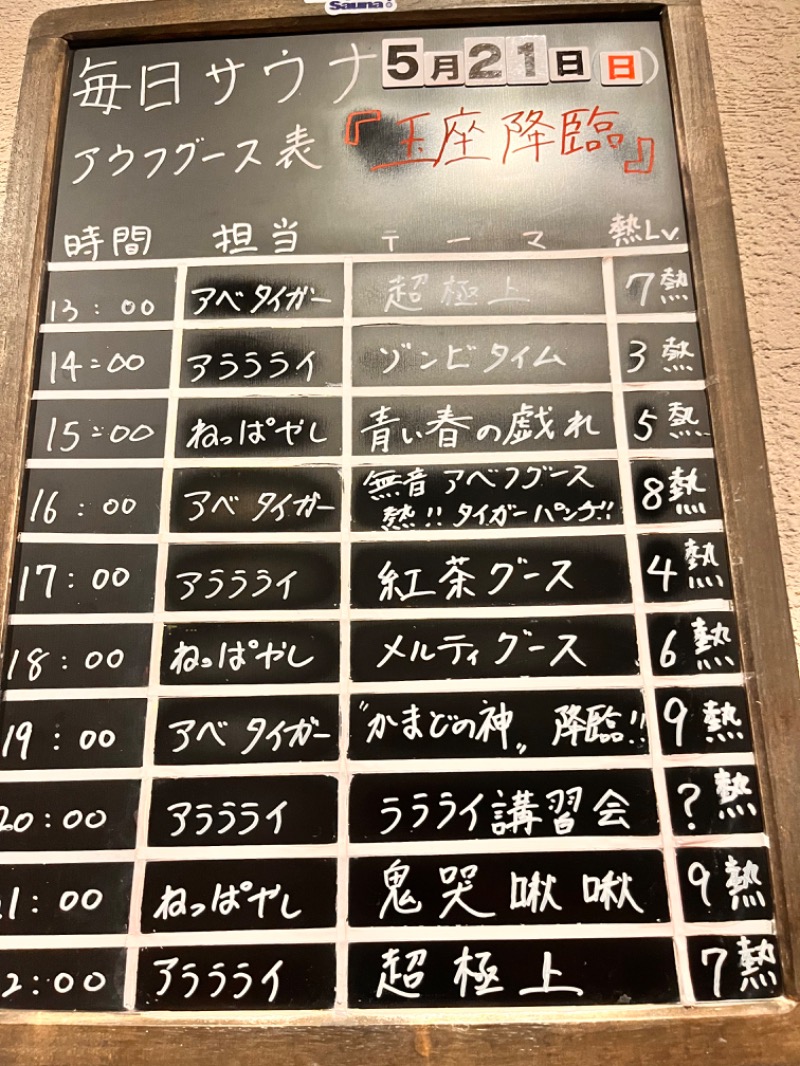 Sauna
毎日サウナ 5月21日 日)
アウフグース表 『玉座降臨』
時間 担当 テーマ 熱Lv.
13:00 アベタイガー 超極上 7熱
14:00 アラララライ ゾンビタイム 3熱
15:00 ねっぱやし 青い春の戯れ 5熱
16:00 アベタイガー 無音アベフグース
熱!!タイガーパンチ!! 8熱
17:00 アラララライ 紅茶グース 4熱
18:00 ねっぱやし メルティグース 6熱
19:00 アベタイガー "かまどの神„ 降臨!! 9熱
20:00 アラララライ ララライ講習会 ?熱
1:00 ねっぱやし 鬼哭啾啾 9熱
2:00 アラララライ 超極上 7熱